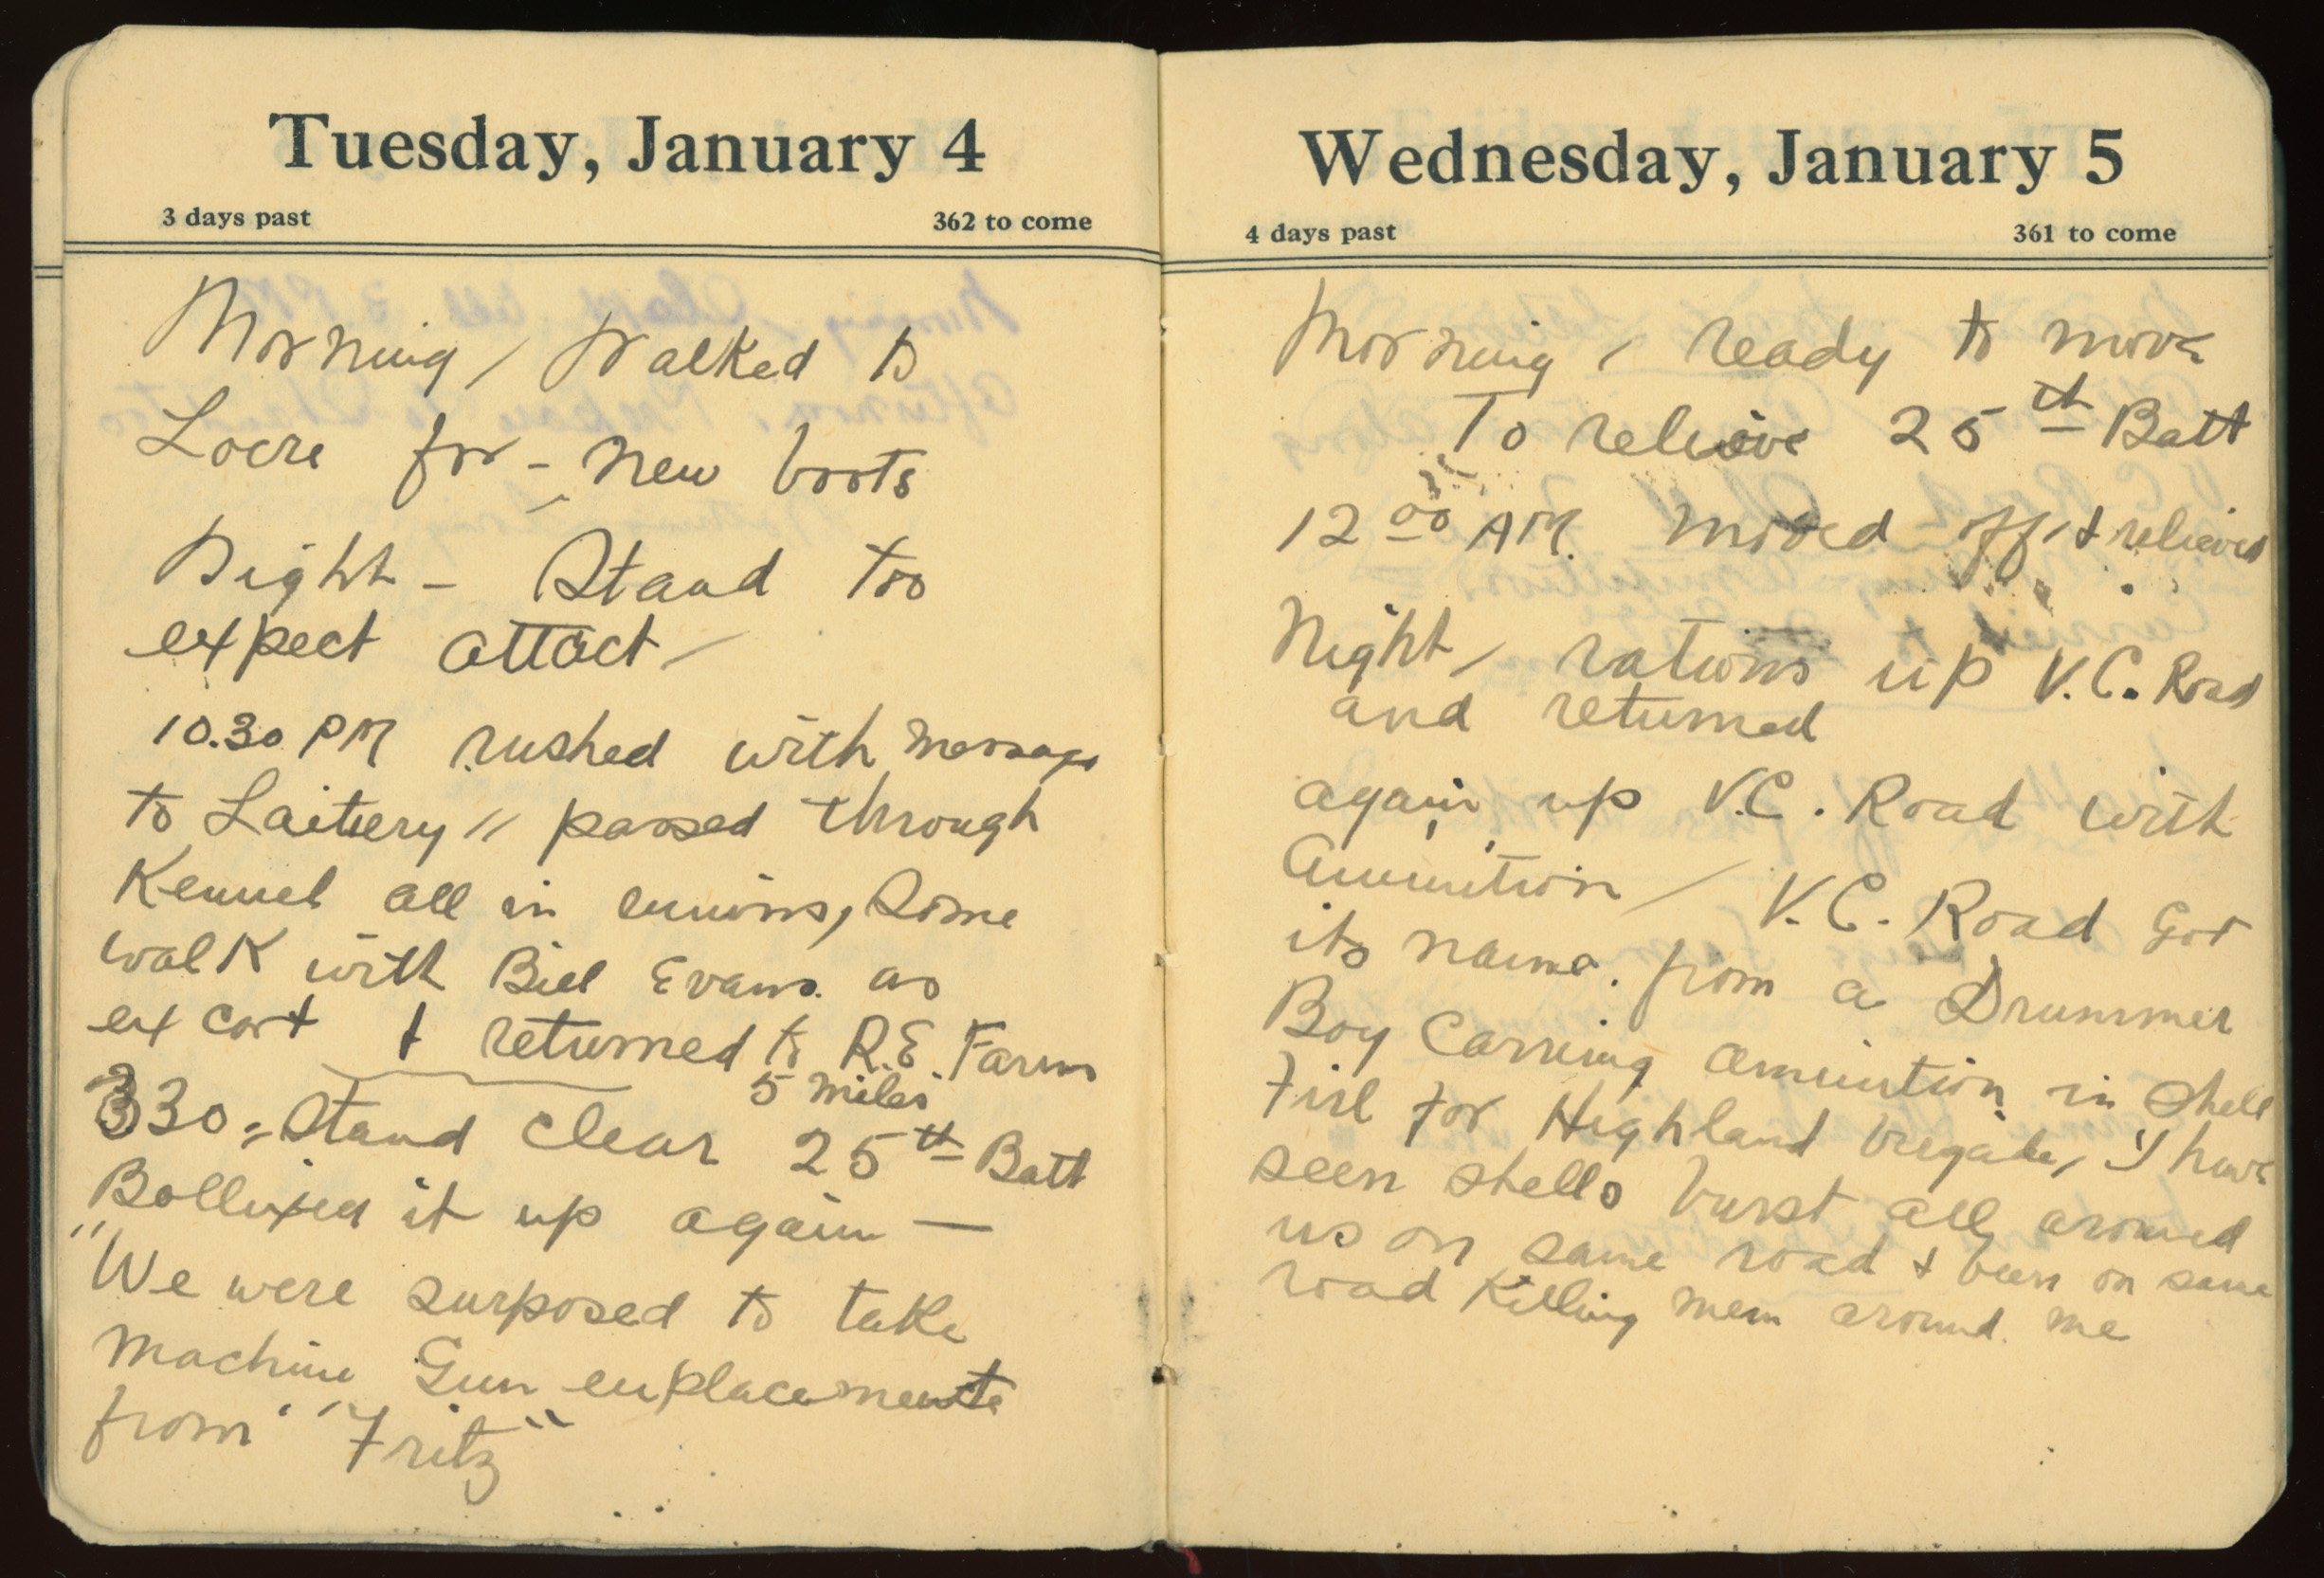 Tuesday, January 4
3 days past 362 to come
Morning / Walked to
Locre for - new boots
Night - Stand too
expect attact /
10.30 PM rushed with message
to Laitery // passed through
Kennel all in ruuins, Some
walk with Bill Evans as
ex cort & returned to R.E. Farm
5 miles
330 = Stand clear 25th Batt
Bollixed it up again —
"We were surposed to take
Machine Gun enplacements
from "Fritz"
Wednesday, January 5
4 days past 361 to come
Morning / ready to move
To relieve 25th Batt
12 00 AM. moved off / & relieved
Night / rations up V.C. Road
and returned
again up V.C. Road with
Amunition / V.C. Road got
its name. from a Drummer
Boy Carring amunition in Shell
Fire for Highland brigade, I have
seen shells burst all around
us on same road & been on same
road killing men around me